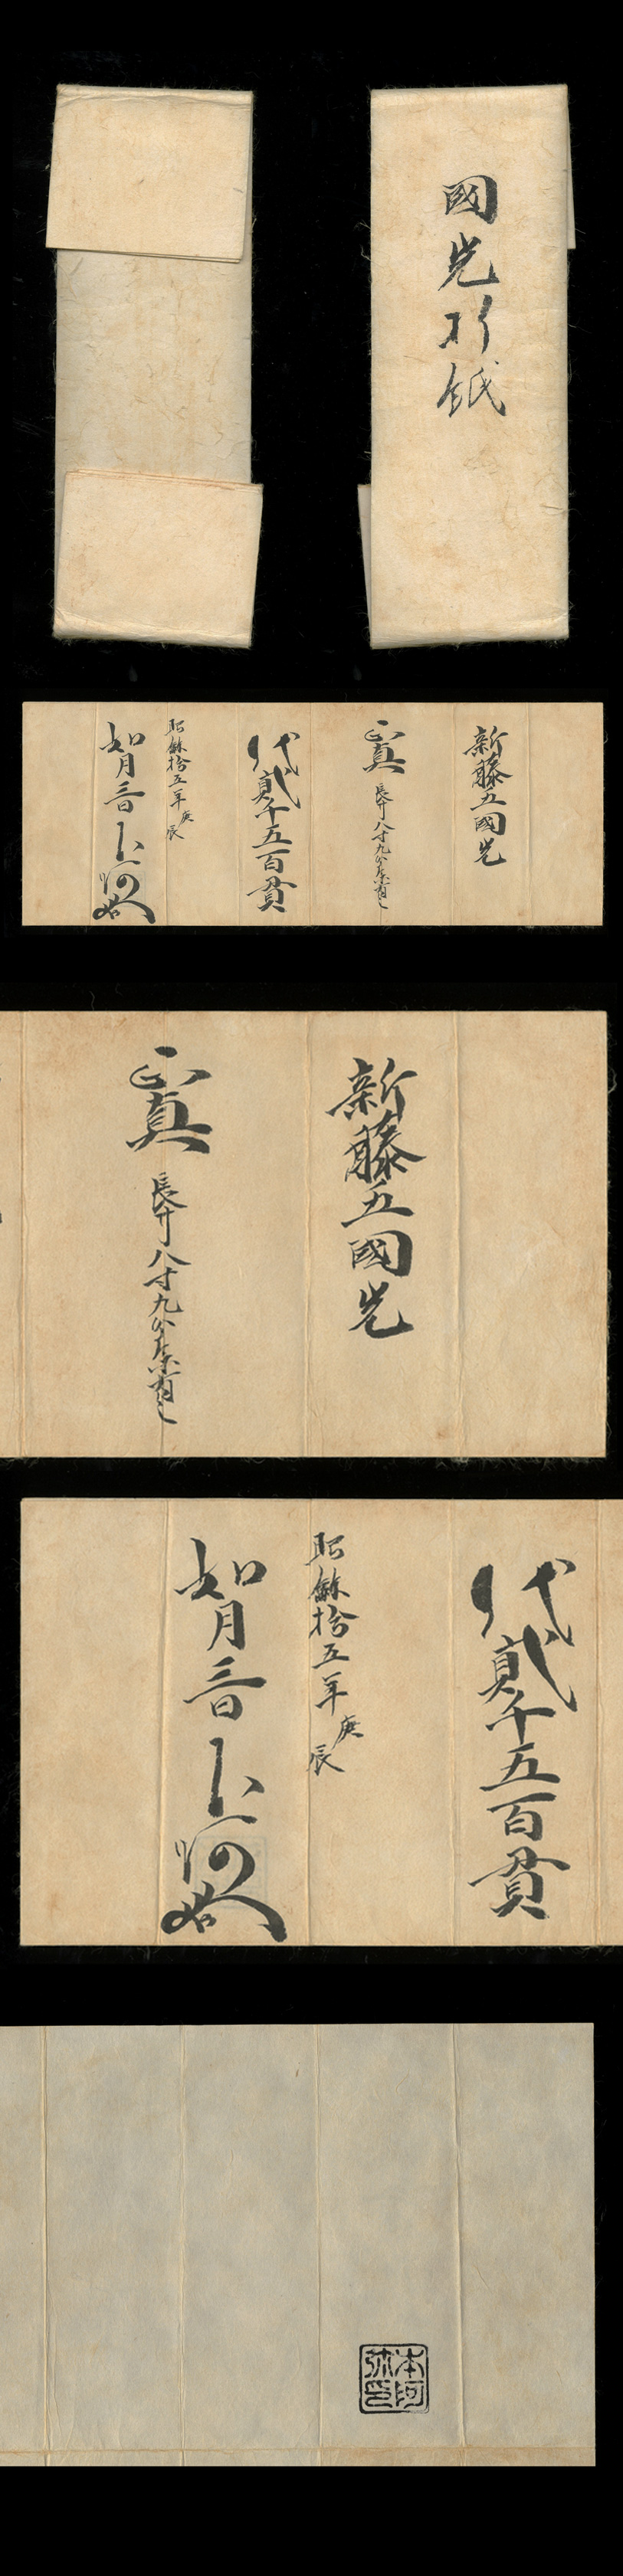 國光折紙
新藤五國光
正真 長サ八寸九分 有之
代貳千五百貫
昭和拾五年庚辰
如月三日 本阿
新藤五國光
正真 長サ八寸九分 有之
代貳千五百貫
昭和拾五年庚辰
如月三日 本阿
本阿
弥